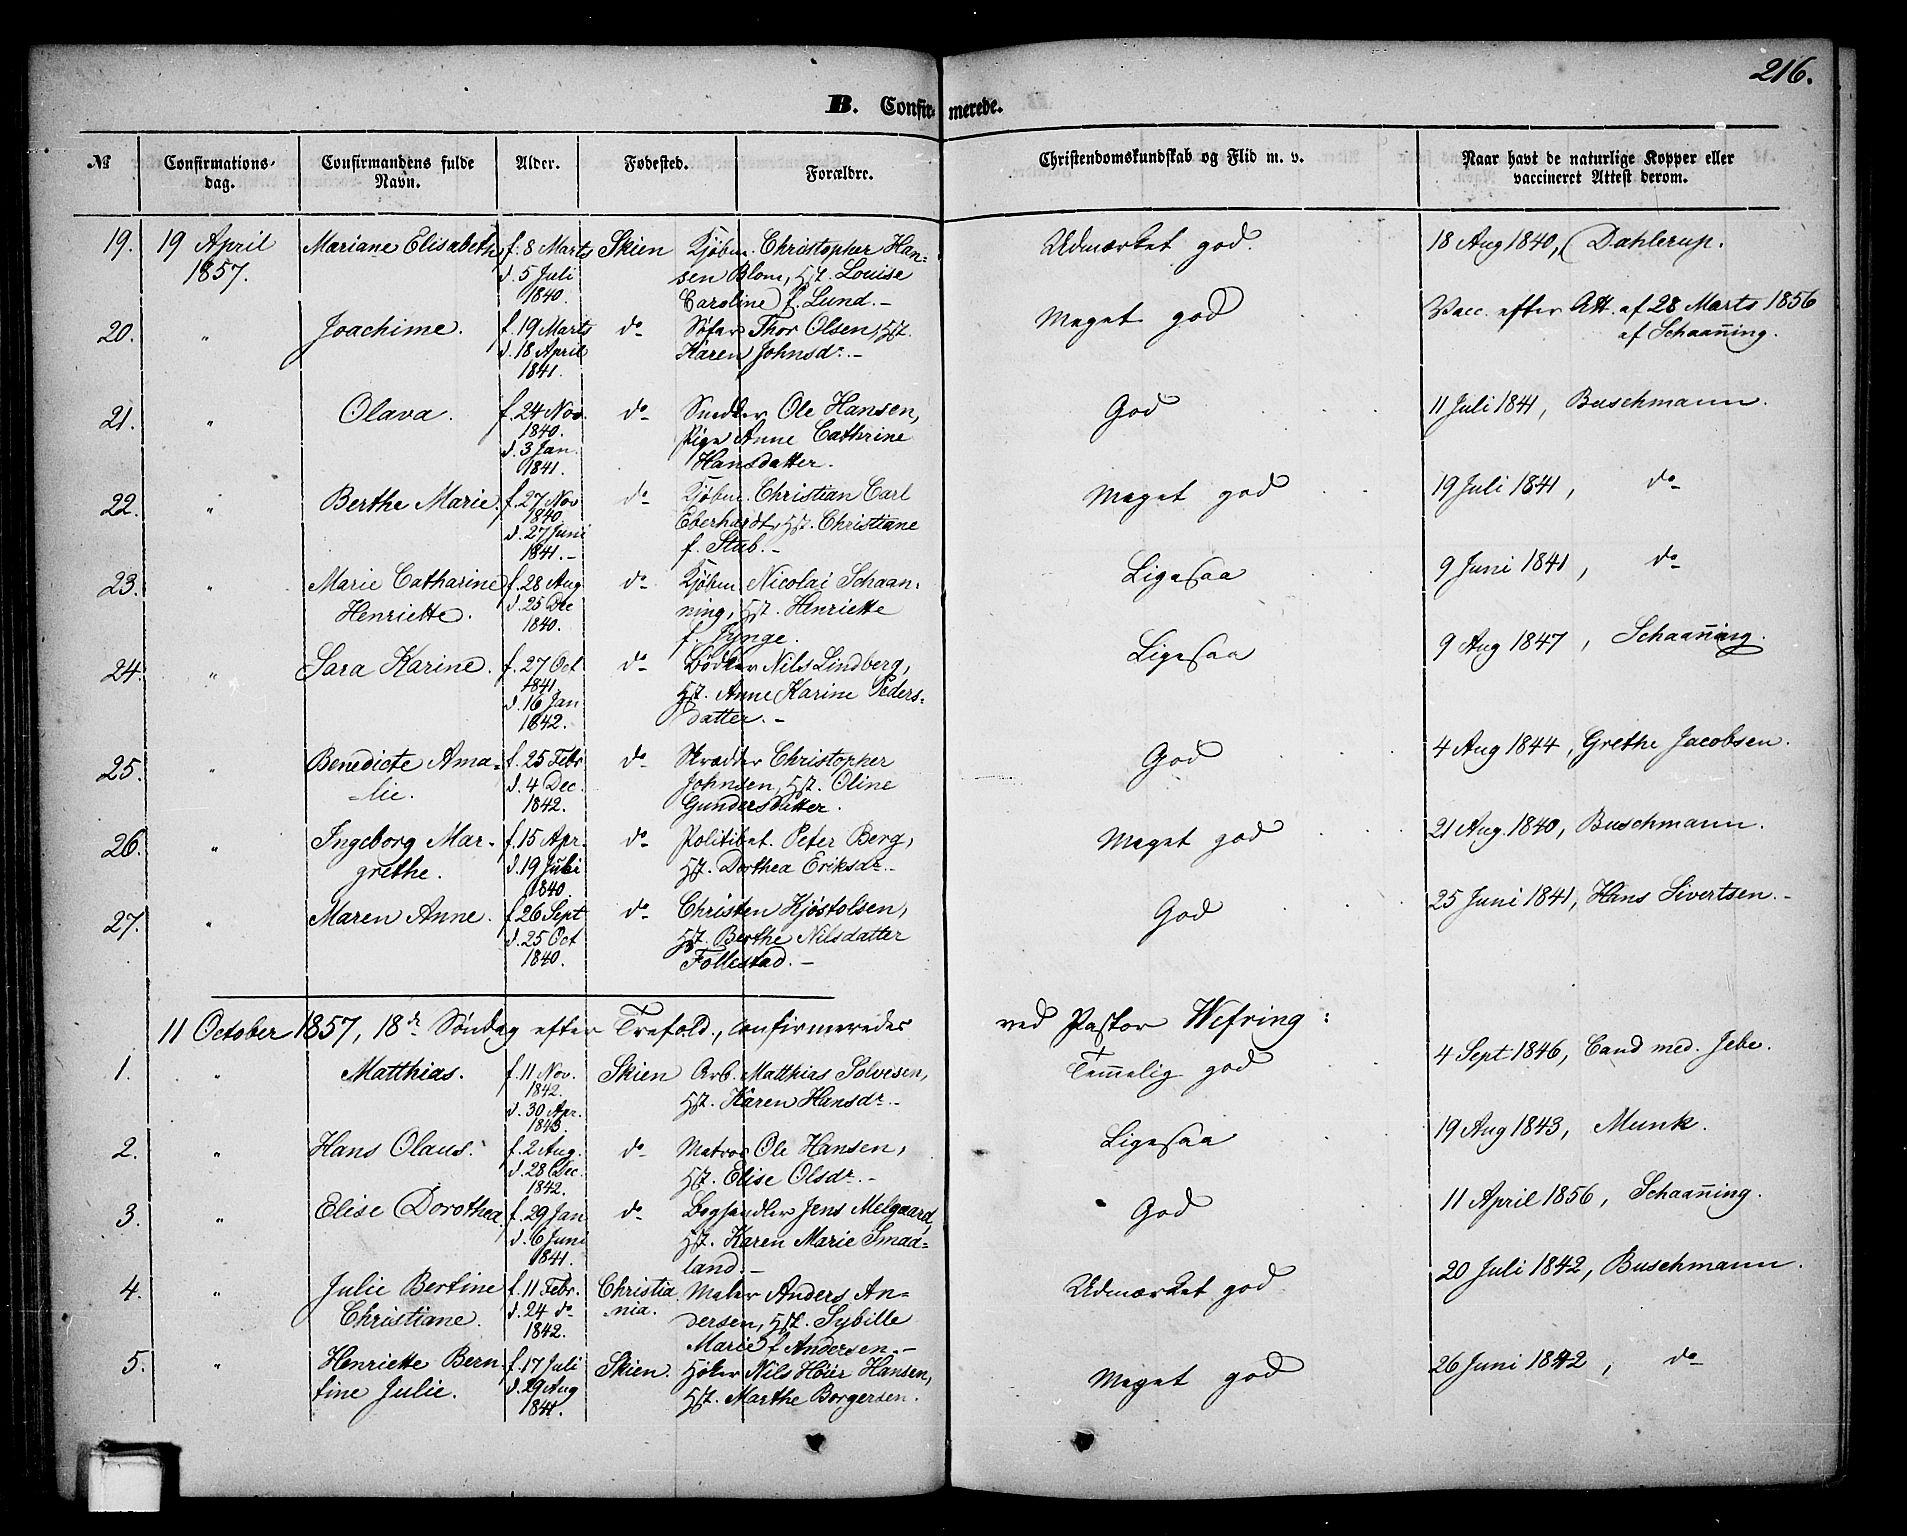 216.
B. Confirmerede.
№ Confirmations- dag. Confirmandens fulde Navn. Alder. Fødested. Forældre. Christendomskundskab og Flid m. v. Naar havt de naturlige Kopper eller vaccineret Attest derom.
19. 19 April Mariane Elisabeth f. 8 Marts Skien Kjøbm. Christopher Han- Udmærket god. 18 Aug 1840, Dahlerup.
1857. d. 5 Juli sen Blom, Hst. Louise
1840. Caroline f. Lund. –
20. " Joachime. f. 19 Marts do Søfar. Thor Olsen, Hst. Meget god Vacc. efter Att. af 28 Marts 1856
d. 18 April Karen Johnsdr. – af Schaanning.
1841.
21. " Olava. f. 24 Nov. do Snedker Ole Hansen, God 11 Juli 1841, Buschmann.
1840. Pige Anne Cathrine
d. 3 Jan. Hansdatter.
1841.
22. " Berthe Marie. f. 27 Nov do Kjøbm. Christian Carl Meget god 19 Juli 1841, do
1840 Eberhardt, Hst. Christiane
d. 27 Juni f. Stub. –
1841. –
23. " Marie Catharine f. 28 Aug do Kjøbm. Nicolai Schaan- Ligesaa 9 Juni 1841, do
Henriette. d. 25 Dec ning, Hst. Henriette
1840. f. Jynge.
24. " Sara Karine. f. 27 Oct do Bødker Nils Lindberg, Ligesaa 9 Aug 1847, Schaanning.
1841. Hst. Anne Karine Peders-
d. 16 Jan datter. –
1842.
25. " Benedicte Ama- f. 25 Febr do Skrædder Christopher God 4 Aug 1844, Grethe Jacobsen.
lie. d. 4 Dec. Johnsen, Hst. Oline
1842. Gundersdatter.
26. " Ingeborg Mar- f. 15 Apr. do Politibet. Peter Berg, Meget god 21 Aug. 1840, Buschmann.
grethe. d. 19 Juli Hst. Dorthea Eriksdr. –
1840.
27. " Maren Anne. f. 26 Sept do Christen Kjøstolsen, God 25 Juni 1841, Hans Sivertsen. –
d. 25 Oct Hst. Berthe Nilsdatter
1840. Follestad. –
11 October 1857, 18de Søndag efter Trefold., confirmeredes ved Pastor Wefring:
1. " Matthias. f. 11 Nov. Skien Arb. Matthias Solvesen, Temmelig god 4 Sept 1846, Cand med. Jebe.
1842. Hst. Karen Hansdr. –
d. 30 Apr.
1843.
2. " Hans Olaus. f. 2 Aug. do Matros Ole Hansen, Ligesaa 19 Aug 1843, Munk.
d. 28 Dec. Hst. Elise Olsdr. –
1842.
3. " Elise Dorothea f. 29 Jan do Boghandler Jens Melgaard, God 11 April 1856, Schaanning.
d. 6 Juni Hst. Karen Marie Smaa-
1841. land. –
4. " Julie Bertine f. 11 Febr. Christia Maler Anders An- Udmærket god 20 Juli 1842, Buschmann.
Christiane. d. 24 do nia. dersen, Hst. Sybille
1842. Marie f. Andersen. –
5. " Henriette Bern f. 17 Juli Skien. Høker Nils Høier Hansen, Meget god 26 Juni 1842, do
tine Julie. d. 29 Aug Hst. Marthe Borgersen.
1841.